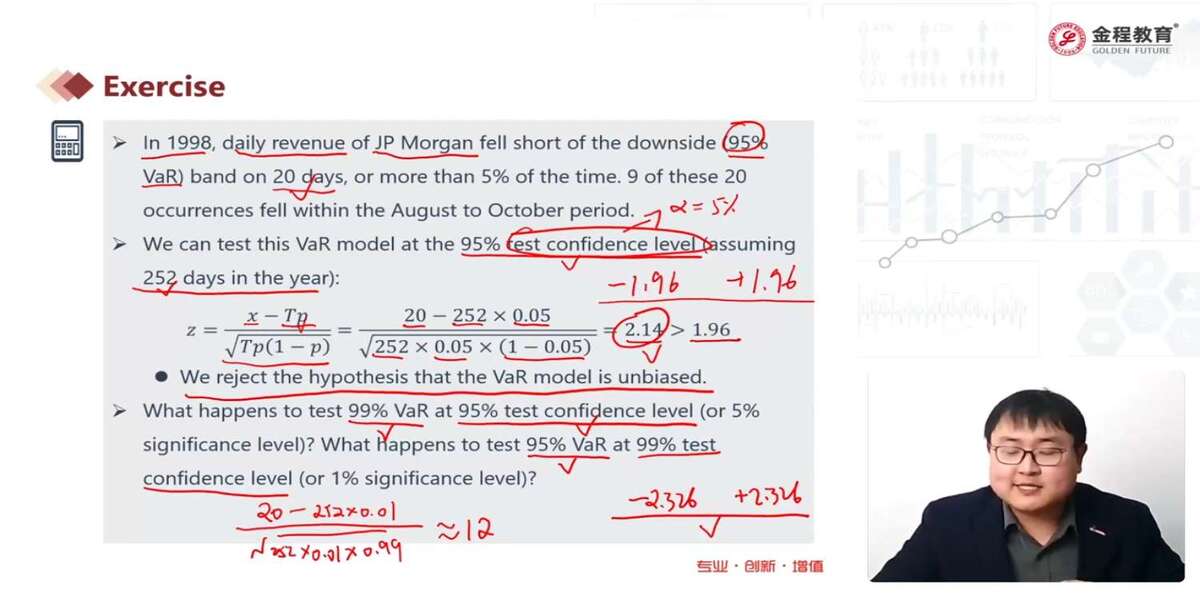 金程教育
GOLDEN FUTURE
Exercise
➢ In 1998, daily revenue of JP Morgan fell short of the downside (95%
VaR) band on 20 days, or more than 5% of the time. 9 of these 20
occurrences fell within the August to October period.
α = 5%
➢ We can test this VaR model at the 95% test confidence level (assuming
252 days in the year):
-1.96 +1.96
z = \frac{x - Tp}{\sqrt{Tp(1 - p)}} = \frac{20 - 252 × 0.05}{\sqrt{252 × 0.05 × (1 - 0.05)}} = 2.14 > 1.96
● We reject the hypothesis that the VaR model is unbiased.
➢ What happens to test 99% VaR at 95% test confidence level (or 5%
significance level)? What happens to test 95% VaR at 99% test
confidence level (or 1% significance level)?
-2.326 +2.326
\frac{20 - 252×0.01}{\sqrt{252×0.01×0.99}} ≈ 12
专业·创新·增值